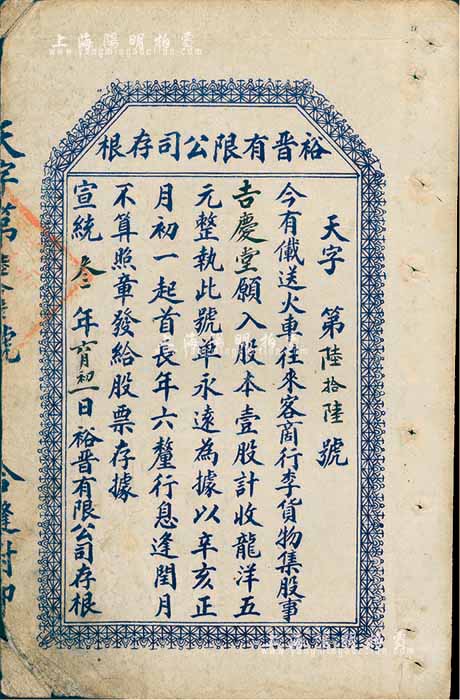 上海陽明拍賣
裕晋有限公司存根
天字 第陸拾陸號
今有儎送火車往來客商行李貨物集股事
吉慶堂願入股本壹股計收龍洋五
元整執此號單永遠為據以辛亥正
月初一起首長年六釐行息逢閏月
不算照章發給股票存據
宣統叁年六月初一日裕晋有限公司存根
天字第陸拾陸號 合縫對印